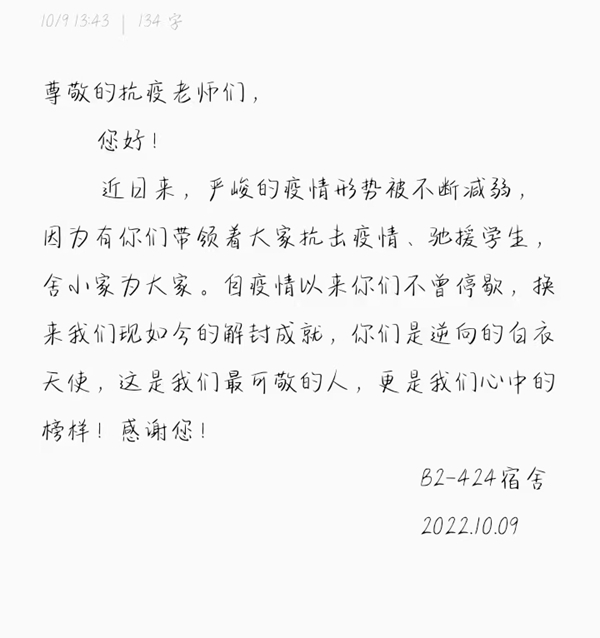 10/9 13:43 | 134 字
尊敬的抗疫老师们，
您好！
近日来，严峻的疫情形势被不断减弱，
因为有你们带领着大家抗击疫情、驰援学生，
舍小家为大家。自疫情以来你们不曾停歇，换
来我们现如今的解封成就，你们是逆向的白衣
天使，这是我们最可敬的人，更是我们心中的
榜样！感谢您！
B2-424宿舍
2022.10.09